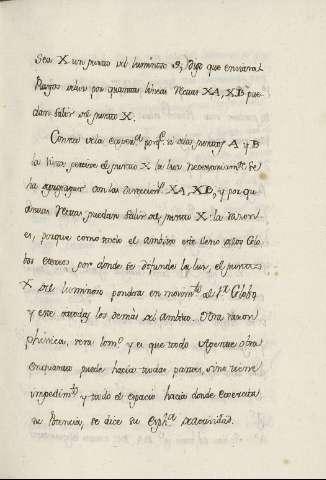 Sea X un punto del luminoso S; digo que enviará
Rayos de luz por quantas lineas rectas XA, XB pue-
dan salir del punto X.
Consta de la experª. porq. si dos, personas A y B
la vista percive el punto X la luz
ha de propagar con las direccions. XA, XB, y por qu-
antas Rectas puedan salir del punto X: la razon
es, porque como todo el ambito este lleno de los Glo-
bos etereos por donde se difunde la luz, el punto
X del luminoso pondra en movimto. al 1º Globo
y este a todos los demas del ambito. Otra razon
phisica, sera como. y es que todo Agente obra
en quanto puede hacia todas partes, sino tiene
impedimto. y todo el espacio hacia donde exercita
su Potencia, se dice su Esphª. de actividad.